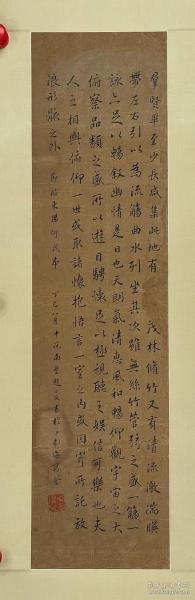 羣賢畢至少長咸集此地有 茂林脩竹又有清流激湍暎
帶左右引以為流觴曲水列坐其次雖無絲竹管弦之盛一觴一
詠亦足以暢敘幽情是日也天朗氣清惠風和暢仰觀宇宙之大
俯察品類之盛所以遊目騁懷足以極視聽之娛信可樂也夫
人之相與俯仰一世或取諸懷抱悟言一室之内或因寄所託放
浪形骸之外 臨東陽何氏本
丁巳八月十